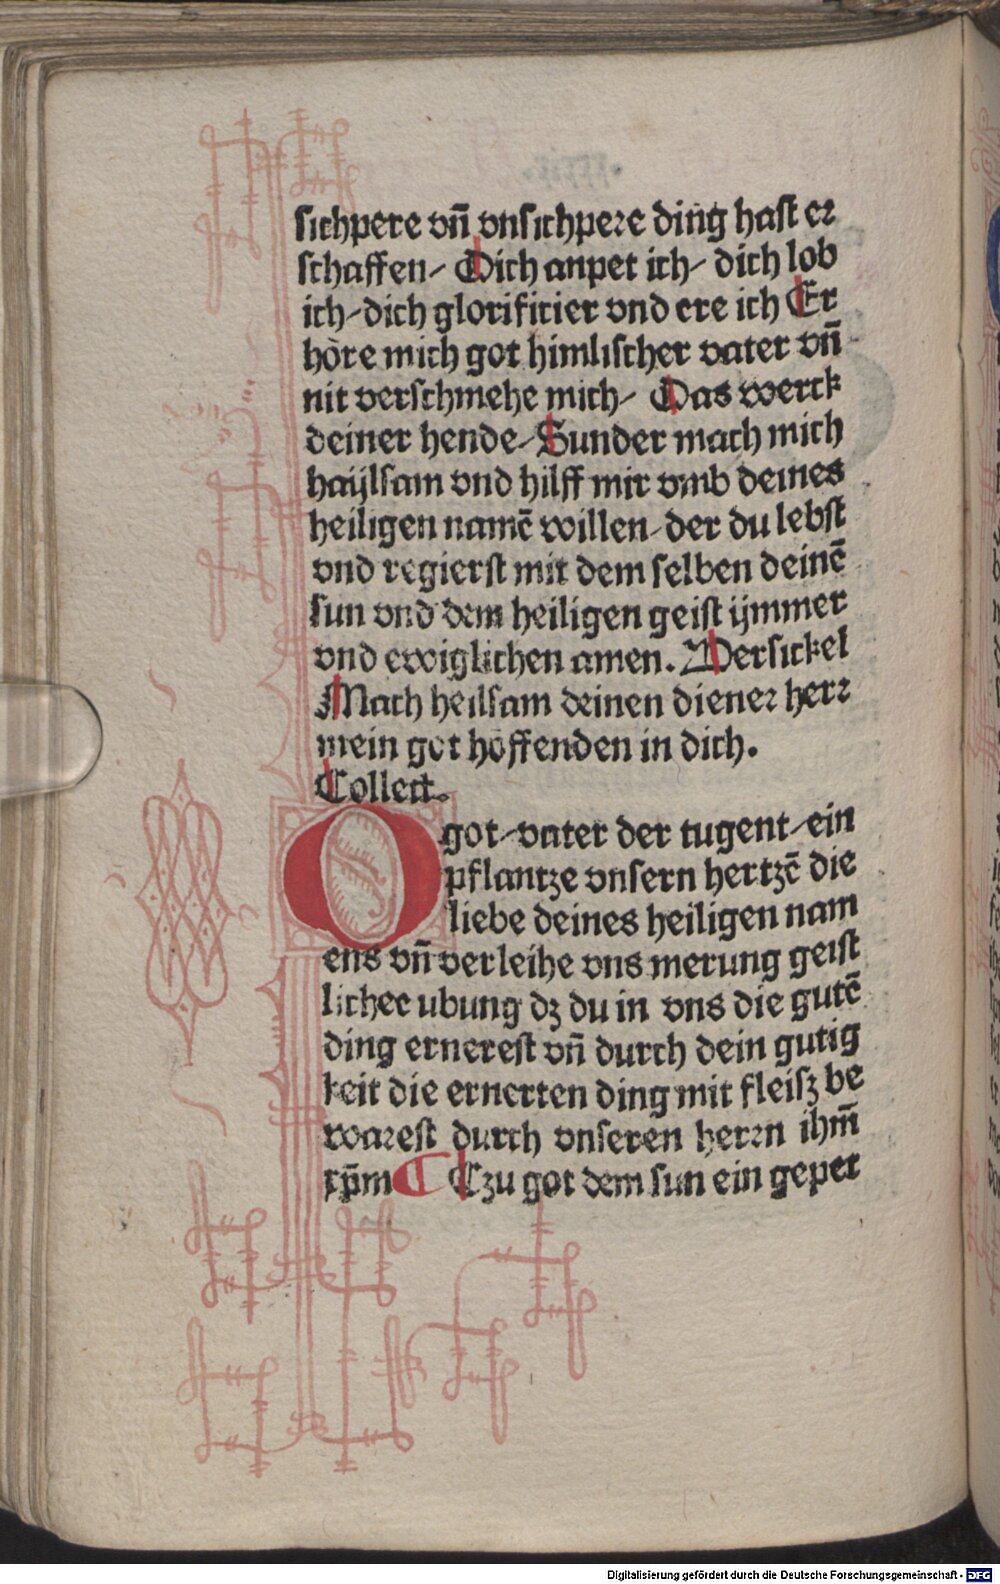 sichpere vn̄ vnsichpere ding hast er
schaffen⸗ Dich anpet ich⸗ dich lob
ich⸗dich glorificier vnd ere ich Er
hōre mich got himlischer vater vn̄
nit verschmehe mich⸗ Das werck
deiner hende⸗Sunder mach mich
haijlsam vnd hilff mir vmb deines
heiligen namē willen⸗der du lebst
vnd regierst mit dem selben deinē
sun vnd dem heiligen geist ijmmer
vnd ewiglichen amen. Versickel
Mach heilsam deinen diener herr
mein got hoffenden in dich.
Collect.
O got⸗vater der tugent⸗ein
pflantze vnsern hertzē die
liebe deines heiligen nam
ens vn̄ verleihe vns merung geist
licher ubung dz du in vns die gutē
ding ernerest vn̄ durch dein gutig
keit die ernerten ding mit fleisz be
warest durch vnseren herrn ihm̄
xp̄m ¶ Czu got dem sun ein gepet
Digitalisierung gefördert durch die Deutsche Forschungsgemeinschaft - DFG